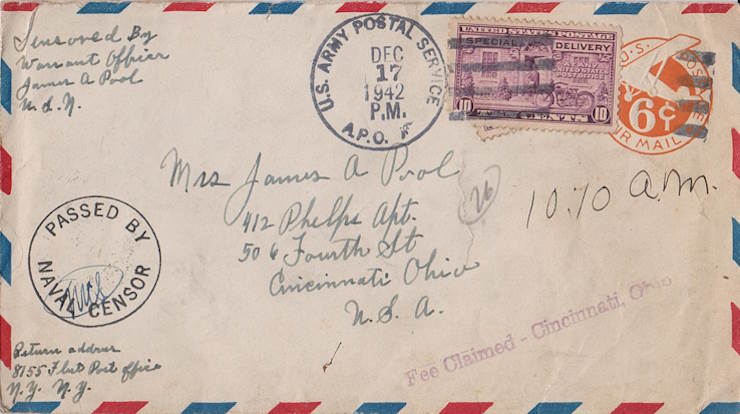 Censored By
Warrant Officer
James A Pool
U.S.N.
U.S. ARMY POSTAL SERVICE
DEC
17
1942
P.M.
A.P.O.
UNITED STATES POSTAGE
SPECIAL DELIVERY
AT ANY
UNITED STATES
POST OFFICE
10 TEN CENTS 10
U.S. POSTAGE
6¢
AIR MAIL
Mrs James A Pool
412 Phelps Apt.
506 Fourth St
Cincinnati Ohio
U.S.A.
26
10:10 a.m.
PASSED BY
NAVAL CENSOR
Fee Claimed - Cincinnati, Ohio
Return address
8155 Fleet Post Office
N.Y. N.Y.